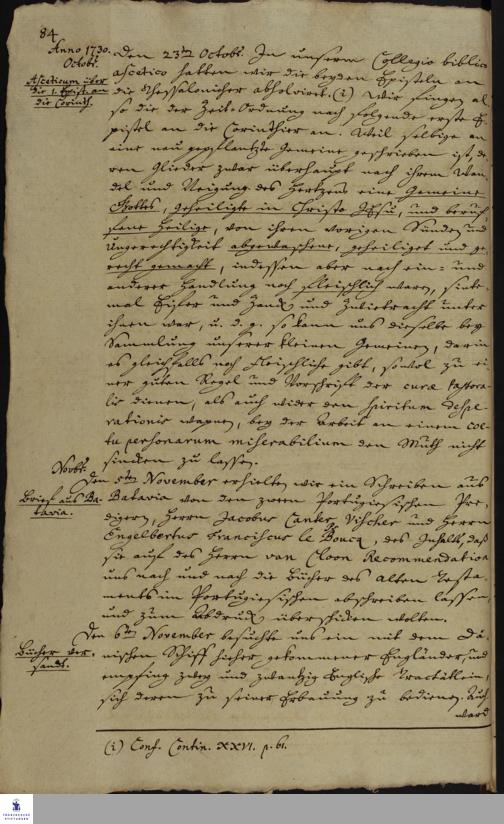 84
Anno 1730.
Octobr.
Asceticum über
die 1. Epist. an
die Corinth.
Den 23ten Octobr. In unserm Collegio biblico
ascetico hatten wir die beyden Episteln an
die Thessalonicher absolviret. (i) Wir fingen al
so die der Zeit-Ordnung nach folgende erste E
pistel an die Corinthier an. Weil selbige an
eine neu gepflantzte Gemeine geschrieben ist, de
ren Glieder zwar überhaupt nach ihrem Wan
del und Neigung des Hertzens eine Gemeine
Gottes, geheiligte in Christo JEsu, und beruf
fene Heilige, von ihren vorigen Sünden und
Ungerechtigkeit abgewaschene, geheiliget und ge
recht gemacht, indessen aber nach ein- und
anderer Handlung noch fleischlich waren, sinte
mal Eifer und Zanck und Zwietracht unter
ihnen war, u. d. g. so kann uns dieselbe bey
Sammlung unserer kleinen Gemeinen, darin
es gleichfalls noch fleischliche gibt, sowol zu ei
ner guten Regel und Vorschrifft der curæ pastora
lis dienen, als auch wider den spiritum despe
rationis wapnen, bey der Arbeit an einem coe
tu personarum miserabilium den Muth nicht
sincken zu lassen.
Novbr.
Brief aus Ba-
tavia.
Den 5ten November erhielten wir ein Schreiben aus
Batavia von den zween Portugiesischen Pre
digern, Herrn Jacobus Canter Vischer und Herrn
Engelbertus Franciscus le Boucq, des Inhalts, daß
sie auf des Herrn van Cloon Recommendation
uns nach und nach die Bücher des Alten Testa
ments in Portugiesischen abschreiben lassen,
und zum Abdruck überschicken wolten.
Bücher ver-
sandt.
Den 6ten November besuchte uns ein mit dem Dä
nischen Schiff hieher gekommener Engländer, und
empfing zwey und zwantzig Englische Tractätlein,
sich deren zu seiner Erbauung zu bedienen. Auch
ward
(i) Conf. Contin. XXVI. p. 61.
FRANCKESCHE
STIFTUNGEN